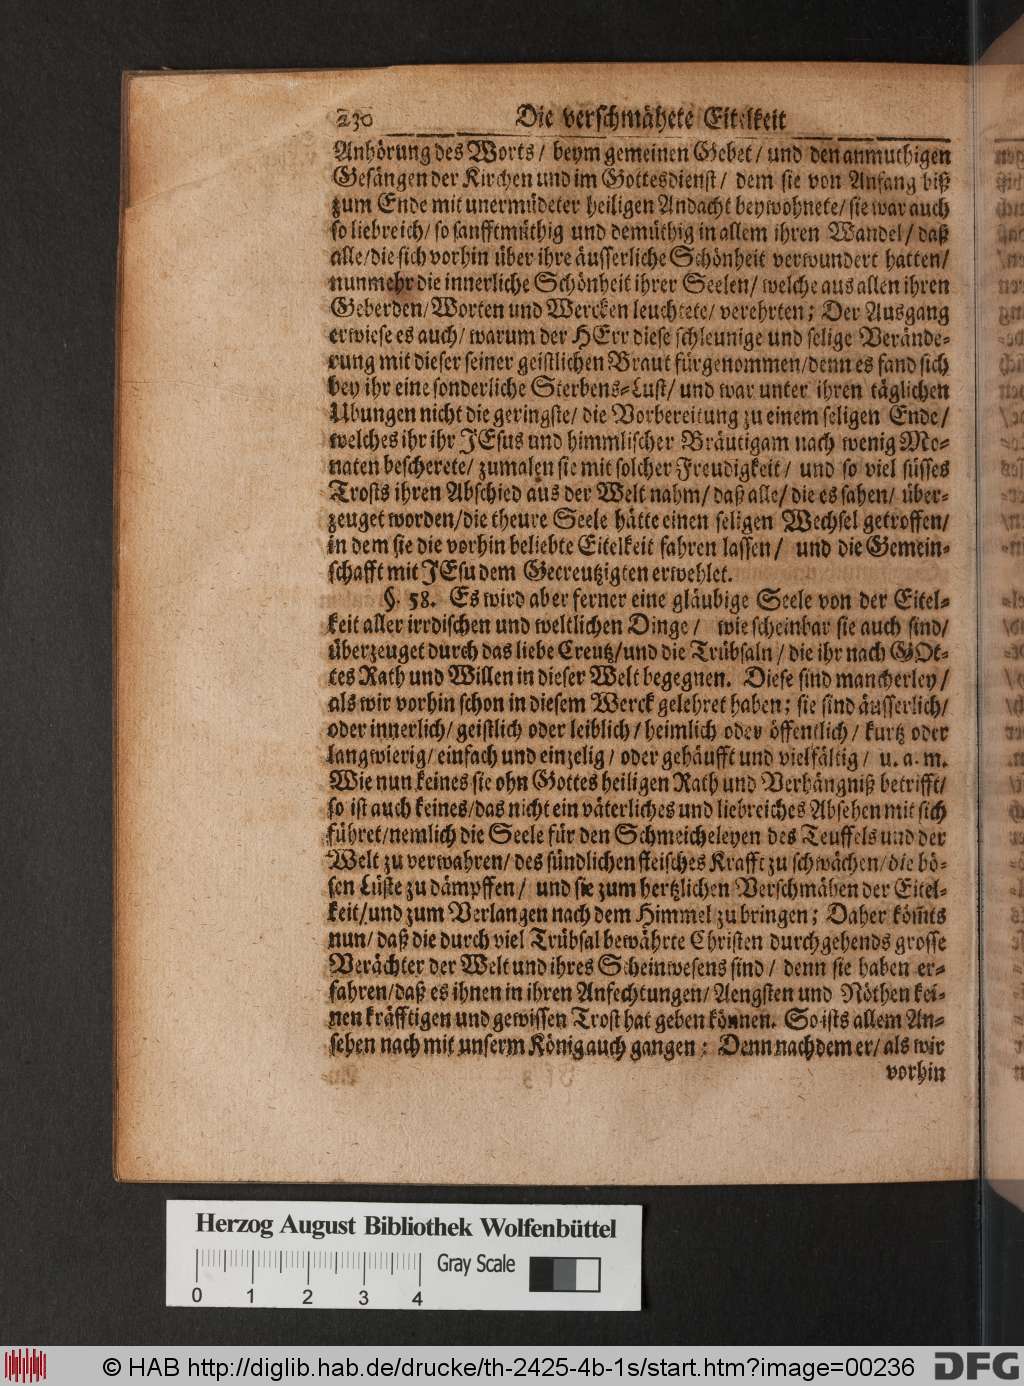 230 Die verschmähete Eitelkeit
Anhörung des Worts / beym gemeinen Gebet / und den anmuthigen
Gesängen der Kirchen und im Gottesdienst / dem sie von Anfang biß
zum Ende mit unermüdeter heiligen Andacht beywohnete / sie war auch
so liebreich / so sanfftmüthig und demüthig in allem ihren Wandel / daß
alle / die sich vorhin über ihre äusserliche Schönheit verwundert hatten /
nunmehr die innerliche Schönheit ihrer Seelen / welche aus allen ihren
Geberden / Worten und Wercken leuchtete / verehrten; Der Ausgang
erwiese es auch / warum der HErr diese schleunige und selige Verände-
rung mit dieser seiner geistlichen Braut fürgenommen / denn es fand sich
bey ihr eine sonderliche Sterbens-Lust / und war unter ihren täglichen
Ubungen nicht die geringste / die Vorbereitung zu einem seligen Ende /
welches ihr ihr JEsus und himmlischer Bräutigam nach wenig Mo-
naten bescherete / zumalen sie mit solcher Freudigkeit / und so viel süsses
Trosts ihren Abschied aus der Welt nahm / daß alle / die es sahen / über-
zeuget worden / die theure Seele hätte einen seligen Wechsel getroffen /
in dem sie die vorhin beliebte Eitelkeit fahren lassen / und die Gemein-
schafft mit JEsu dem Gecreutzigten erwehlet.
§. 58. Es wird aber ferner eine gläubige Seele von der Eitel-
keit aller irrdischen und weltlichen Dinge / wie scheinbar sie auch sind /
überzeuget durch das liebe Creutz / und die Trübsaln / die ihr nach GOt-
tes Rath und Willen in dieser Welt begegnen. Diese sind mancherley /
als wir vorhin schon in diesem Werck gelehret haben; sie sind äusserlich /
oder innerlich / geistlich oder leiblich / heimlich oder öffentlich / kurtz oder
langwierig / einfach und einzelig / oder gehäufft und vielfältig / u. a. m.
Wie nun keines sie ohn Gottes heiligen Rath und Verhängniß betrifft /
so ist auch keines / das nicht ein väterliches und liebreiches Absehen mit sich
führet / nemlich die Seele für den Schmeicheleyen des Teuffels und der
Welt zu verwahren / des sündlichen fleisches Krafft zu schwächen / die bö-
sen Lüste zu dämpffen / und sie zum hertzlichen Verschmähen der Eitel-
keit / und zum Verlangen nach dem Himmel zu bringen; Daher köm̃ts
nun / daß die durch viel Trübsal bewährte Christen durchgehends grosse
Verächter der Welt und ihres Scheinwesens sind / denn sie haben er-
fahren / daß es ihnen in ihren Anfechtungen / Aengsten und Nöthen kei-
nen kräfftigen und gewissen Trost hat geben können. So ists allem An-
sehen nach mit unserm König auch gangen: Denn nachdem er / als wir
vorhin
Herzog August Bibliothek Wolfenbüttel
Gray Scale
0 1 2 3 4
© HAB http://diglib.hab.de/drucke/th-2425-4b-1s/start.htm?image=00236
DFG